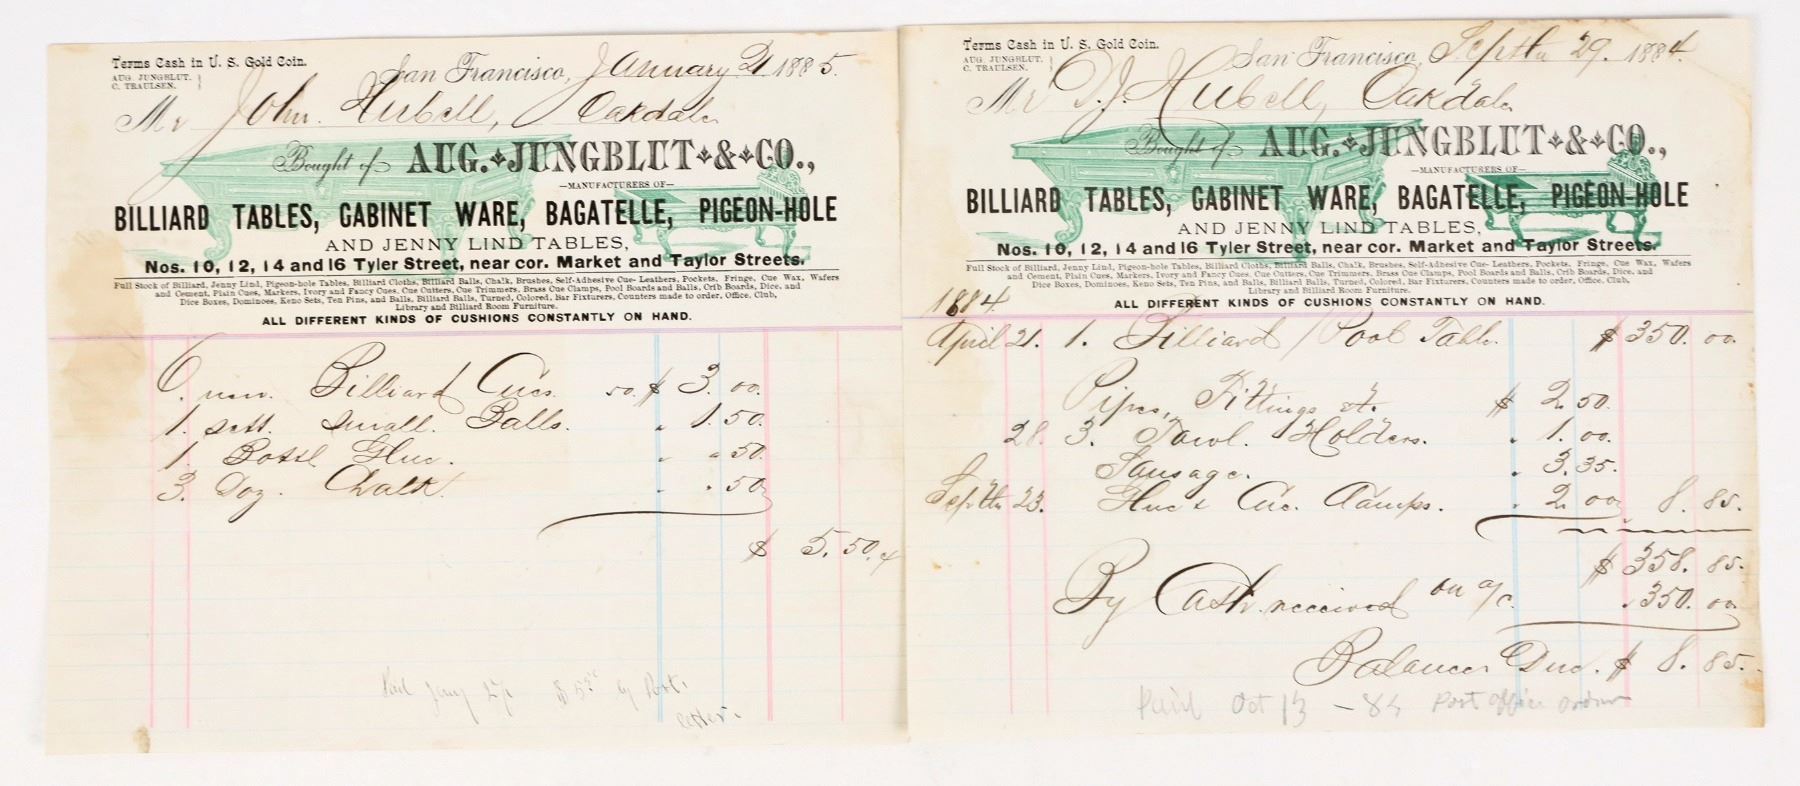 Terms Cash in U. S. Gold Coin.
AUG. JUNGBLUT.
C. TRAULSEN.
San Francisco, January 21. 1885.
Mr John. Hubell, Oakdale
Bought of AUG. JUNGBLUT & CO.,
—MANUFACTURERS OF—
BILLIARD TABLES, CABINET WARE, BAGATELLE, PIGEON-HOLE
AND JENNY LIND TABLES,
Nos. 10, 12, 14 and 16 Tyler Street, near cor. Market and Taylor Streets.
Full Stock of Billiard, Jenny Lind, Pigeon-hole Tables, Billiard Cloths, Billiard Balls, Chalk, Brushes, Self-Adhesive Cue-Leathers, Pockets, Fringe, Cue Wax, Wafers
and Cement, Plain Cues, Markers, Ivory and Fancy Cues, Cue Cutters, Cue Trimmers, Brass Cue Clamps, Pool Boards and Balls, Crib Boards, Dice, and
Dice Boxes, Dominoes, Keno Sets, Ten Pins, and Balls, Billiard Balls, Turned, Colored, Bar Fixturers, Counters made to order, Office, Club,
Library and Billiard Room Furniture.
ALL DIFFERENT KINDS OF CUSHIONS CONSTANTLY ON HAND.
6. new. Billiard Cues. 50. $ 3.00.
1. sett. small. Balls. " 1.50.
1. Bottl Glue. " " 50.
3. Doz. Chalk. " " 50
$ 5.50.
Paid Jany 27 by Post.
Terms Cash in U. S. Gold Coin.
AUG. JUNGBLUT.
C. TRAULSEN.
San Francisco, Septbr 29. 1884.
Mr D.J. Hubell, Oakdale
Bought of AUG. JUNGBLUT & CO.,
—MANUFACTURERS OF—
BILLIARD TABLES, CABINET WARE, BAGATELLE, PIGEON-HOLE
AND JENNY LIND TABLES,
Nos. 10, 12, 14 and 16 Tyler Street, near cor. Market and Taylor Streets.
Full Stock of Billiard, Jenny Lind, Pigeon-hole Tables, Billiard Cloths, Billiard Balls, Chalk, Brushes, Self-Adhesive Cue-Leathers, Pockets, Fringe, Cue Wax, Wafers
and Cement, Plain Cues, Markers, Ivory and Fancy Cues, Cue Cutters, Cue Trimmers, Brass Cue Clamps, Pool Boards and Balls, Crib Boards, Dice, and
Dice Boxes, Dominoes, Keno Sets, Ten Pins, and Balls, Billiard Balls, Turned, Colored, Bar Fixturers, Counters made to order, Office, Club,
Library and Billiard Room Furniture.
ALL DIFFERENT KINDS OF CUSHIONS CONSTANTLY ON HAND.
1884
April 21. 1. Billiard / Pool Table. $ 350.00.
Pipes, Fittings et. $ 2.50.
28. 3. Towl. Holders. " 1.00.
Sausage. " 3.35.
Septbr 23. Glue & Cue. Clamps. " 2.00 8.85.
$ 358.85.
By Cash received on a/c. " 350.00
Balance Due. $ 8.85.
Paid Oct 13 - 84 Post office order